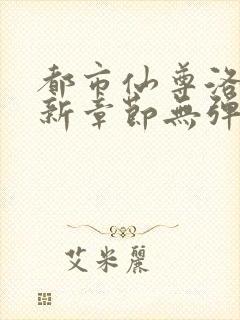 都市仙尊洛
新章節無彈
艾米麗